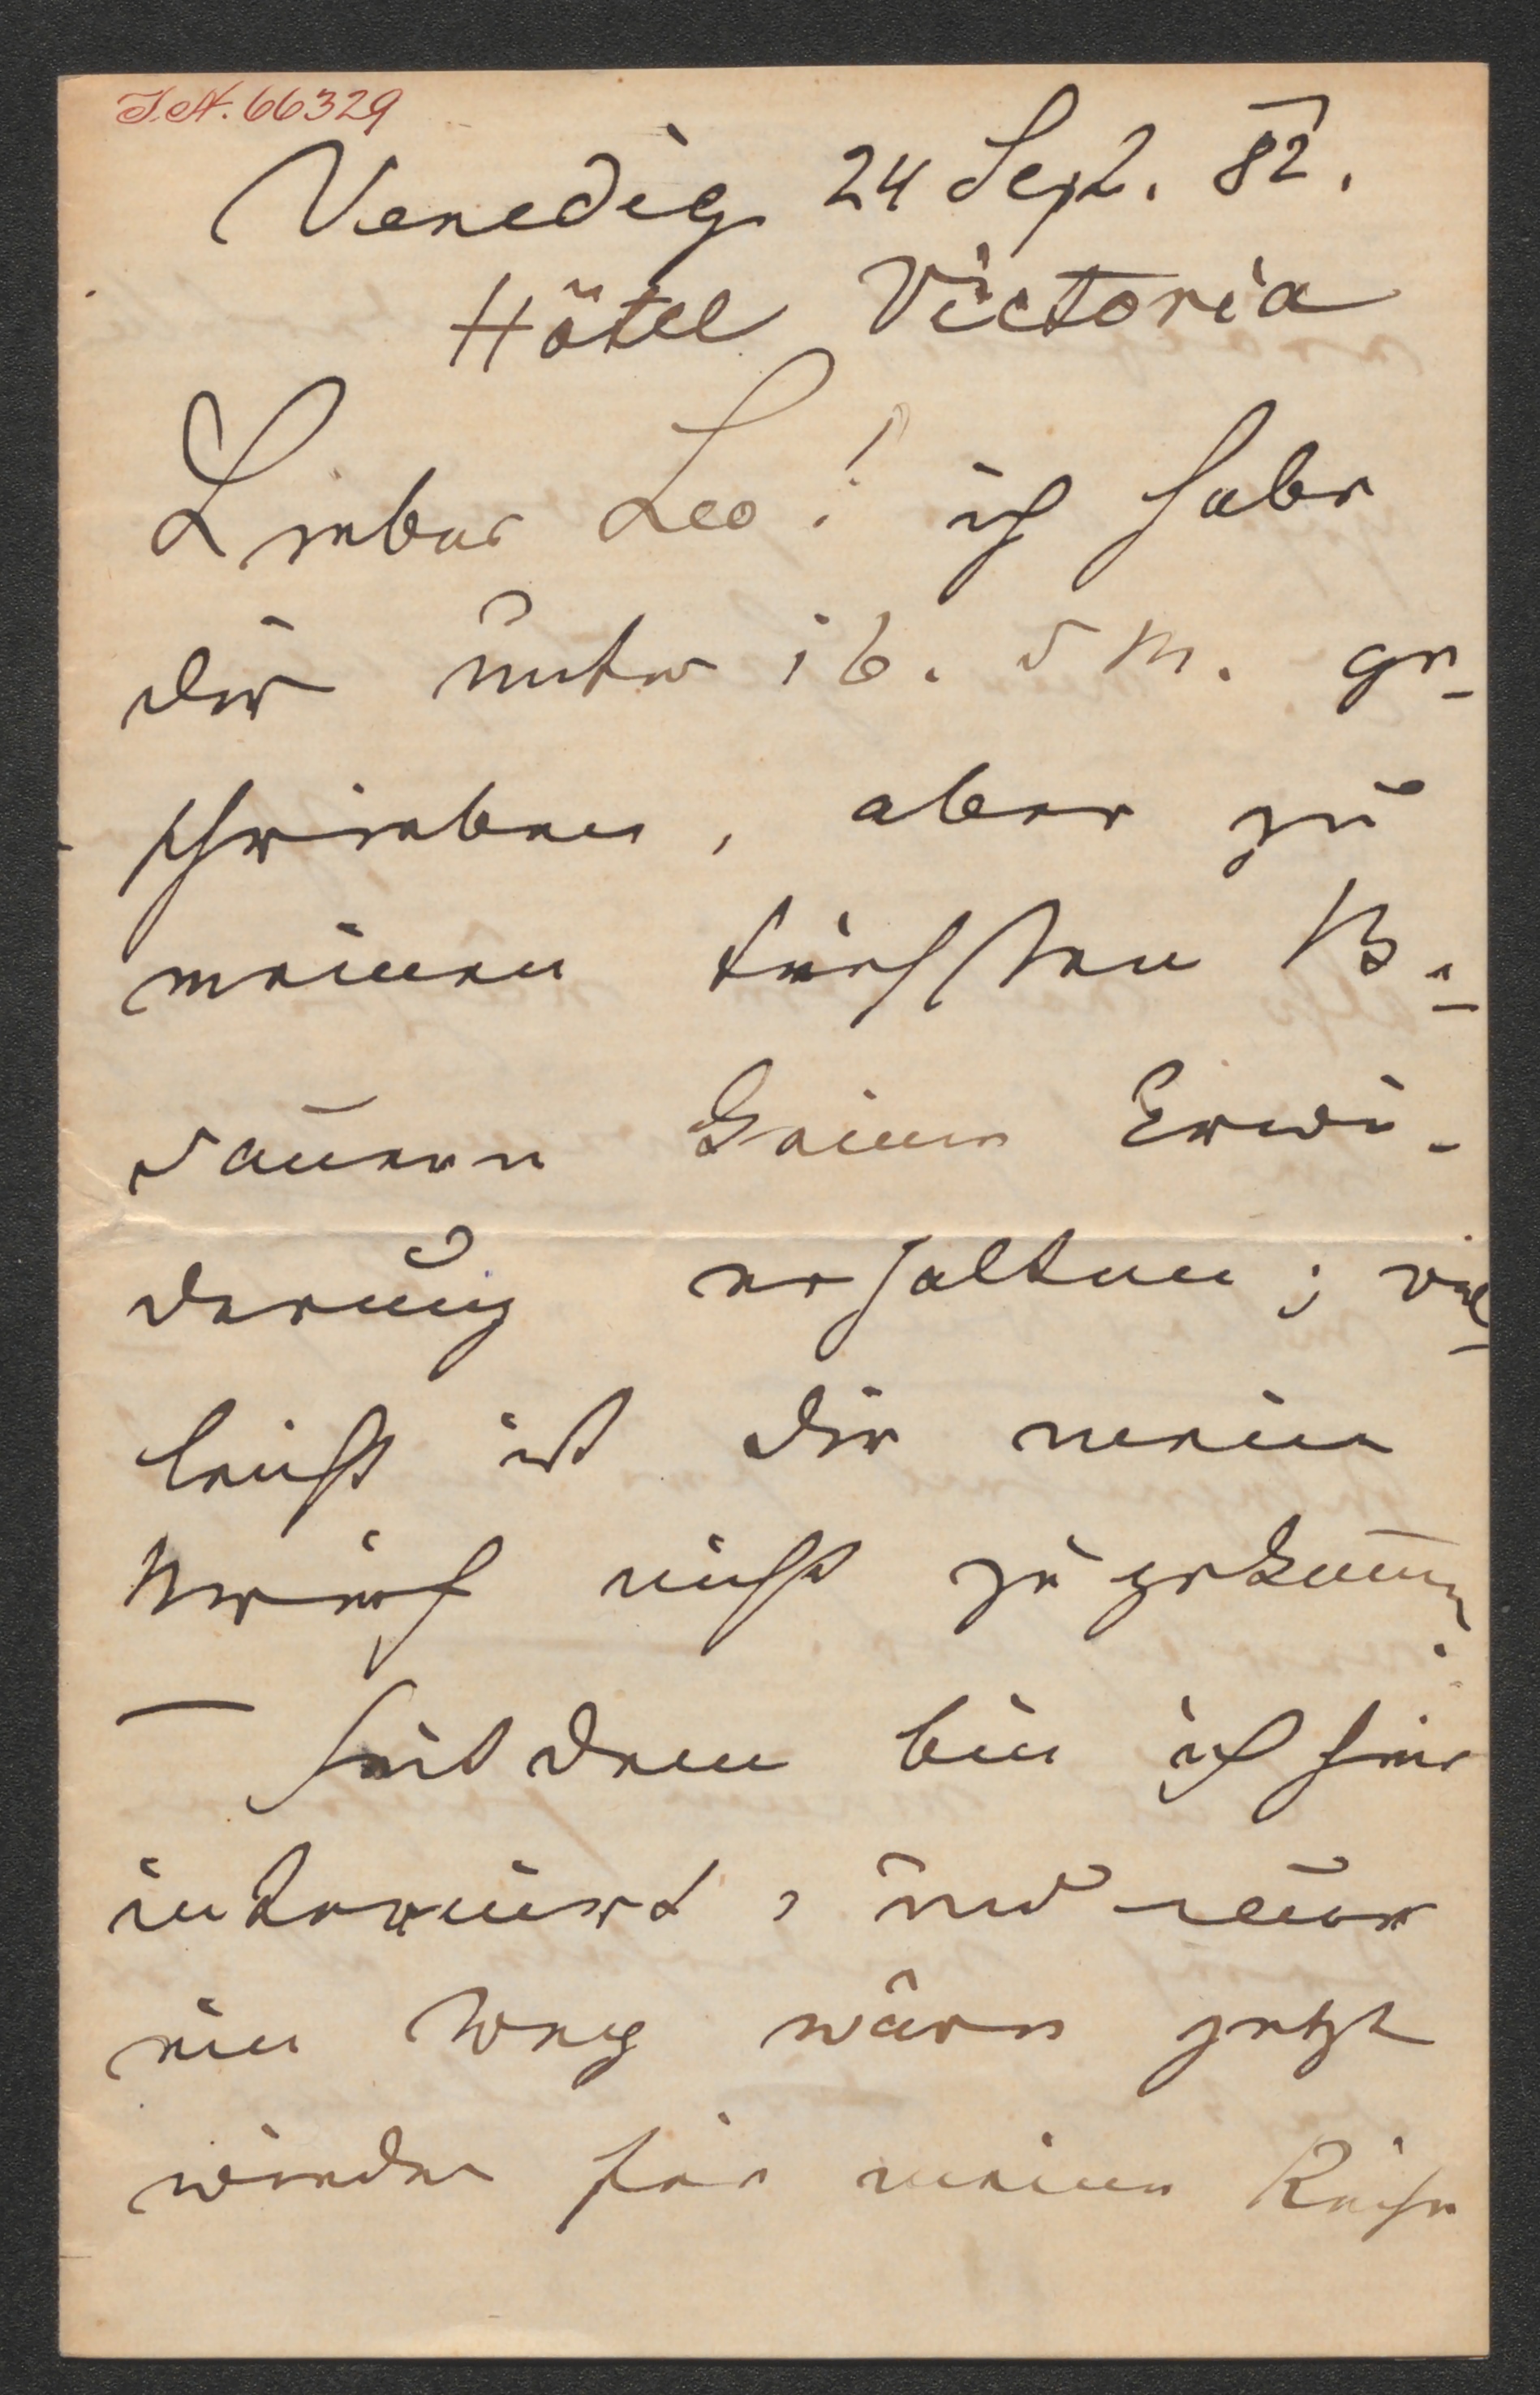 I.N. 66329
Venedig 24 Sept. 82.
Hôtel Victoria
Lieber Leo! ich habe
dir unter 16. d M. ge-
schrieben, aber zu
meinen tiefsten Be-
dauern keine Erwi-
derung erhalten; viel-
leicht ist dir mein
nicht zugekommen.
— Seitdem bin ich hier
internirt, und nur
ein Weg wäre jetzt
wieder für meine Reise